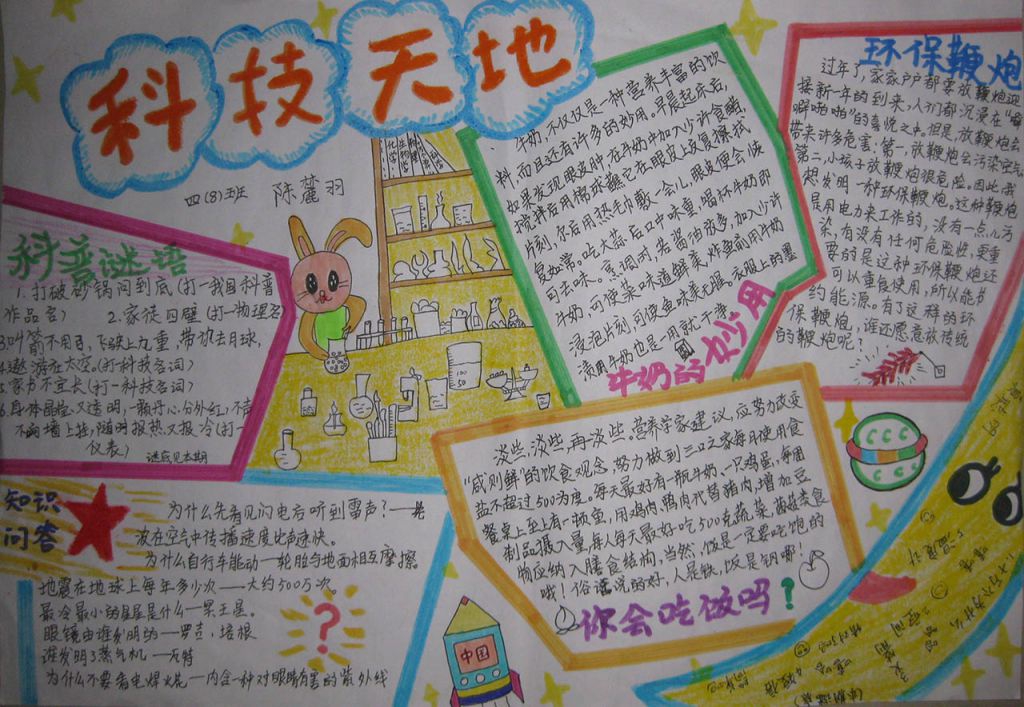 科技天地
四(8)班 陈麓羽
科普谜语
1.打破砂锅问到底(打一我国科普
作品名) 2.家徒四壁(打一物理名
3叫箭不用弓,飞跃上九重,带功去月球,
遨游在太空。(打一科技名词)
5家书不宜长(打一科技名词)
6.身体晶莹又透明,一颗丹心分外红,不声
不响墙上挂,随时报热又报冷(打一
仪表) 谜底见本期
牛奶不仅仅是一种营养丰富的饮
料,而且还有许多的妙用。早晨起床后,
如果发现眼皮肿,在牛奶中加入少许食醋,
搅拌后用棉球蘸它在眼皮上反复擦拭
片刻,尔后用热毛巾敷一会儿,眼皮便会恢
复如常。吃大蒜后口中味重,喝杯牛奶即
可去味。烹调时,若酱油放多,加入少许
牛奶,可使菜味道鲜美,炸鱼前用牛奶
浸泡片刻,可使鱼味美无腥。衣服上的墨
渍用牛奶也是一用就干净。
牛奶的妙用
环保鞭炮
过年了,家家户户都要放鞭炮迎
接新一年的到来,人们都沉浸在“噼
噼啪啪”的喜悦之中。但是,放鞭炮会
带来许多危害:第一,放鞭炮会污染空气
第二,小孩子放鞭炮很危险。因此,我
想发明一种环保鞭炮。这种鞭炮
是用电力来工作的,没有一点儿污
染,有没有任何危险性,更重
要的是这种环保鞭炮还
可以重复使用,所以能节
约能源。有了这样的环
保鞭炮,谁还愿意放传统
的鞭炮呢?
知识
问答
为什么先看见闪电后听到雷声?——光
波在空气中传播速度比声速快。
为什么自行车能动——轮胎与地面相互摩擦
地震在地球上每年多少次——大约500万次。
最冷最小的星星是什么——冥王星。
眼镜由谁发明的——罗吉·培根
谁发明了蒸气机——瓦特
为什么不要看电焊火花——内含一种对眼睛有害的紫外线
?
中国
淡些,淡些,再淡些,营养学家建议,应努力改变
“咸则鲜”的饮食观念,努力做到三口之家每月使用食
盐不超过500为度。每天最好有一瓶牛奶,一只鸡蛋,每周
餐桌上至上有一顿鱼,用鸡肉鸭肉代替猪肉,增加豆
制品摄入量,每人每天最好吃500克蔬菜,菌菇类食
物应纳入膳食结构,当然,饭是一定要吃饱的
哦!俗话说的好,人是铁,饭是钢哪!
你会吃做吗?